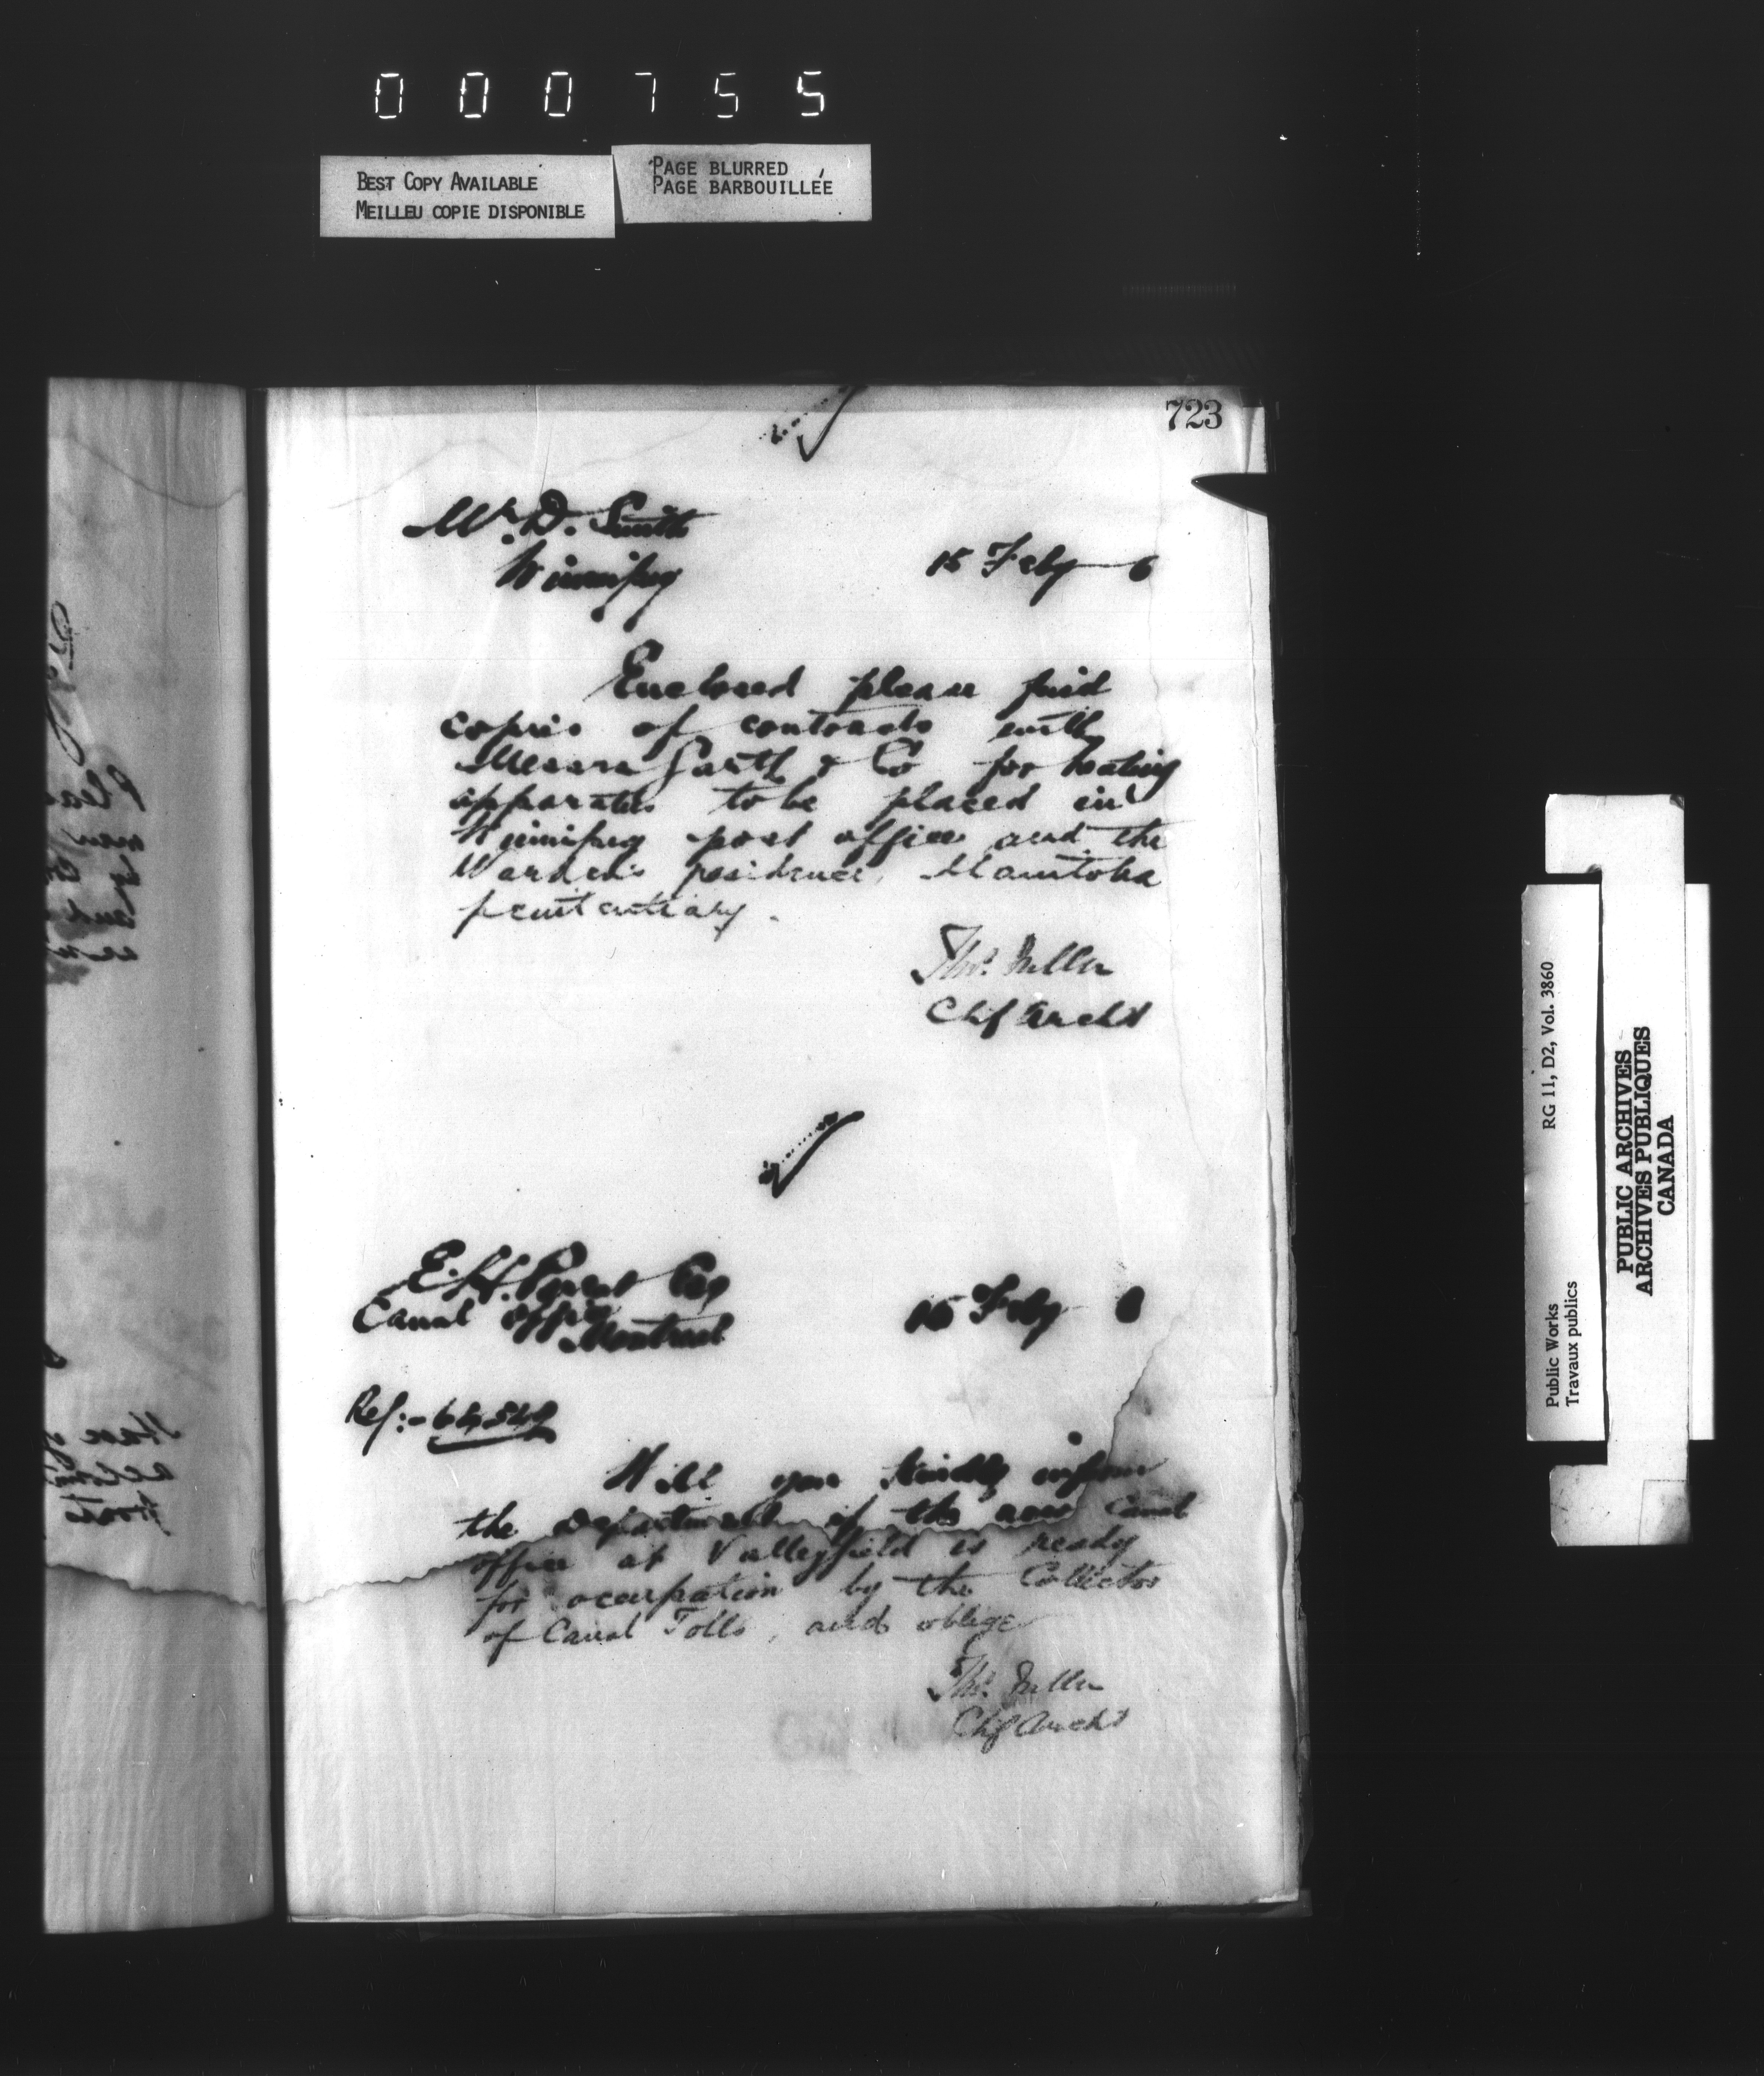 000755
BEST COPY AVAILABLE
MEILLEU COPIE DISPONIBLE
PAGE BLURRED
PAGE BARBOUILLÉE
723
Mr. D. Smith
Winnipeg
15 Feby 6
Enclosed please find
copies of contracts with
Messrs Garth & Co for heating
apparatus to be placed in
Winnipeg post office and the
Warden's residence, Manitoba
penitentiary.
Thos. Fuller
Chf Archt
E. H. Parent Esq
Canal Office
Montreal
15 Feby 6
Ref:-
Will you kindly inform
the Department if the new Canal
office at Valleyfield is ready
for occupation by the Collector
of Canal Tolls, and oblige
Thos. Fuller
Chf Archt
RG 11, D2, Vol. 3860
Public Works
Travaux publics
PUBLIC ARCHIVES
ARCHIVES PUBLIQUES
CANADA